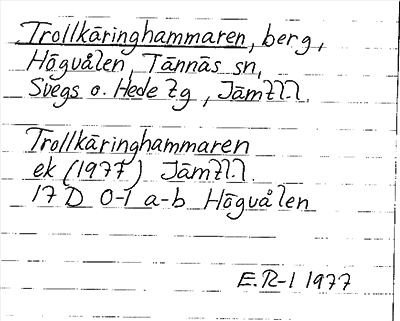 Trollkäringhammaren, berg,
Högvålen, Tännäs sn,
Svegs o. Hede tg, Jämtl.l.
Trollkäringhammaren
ek (1977) Jämtl.l.
17 D 0-1 a-b Högvålen
E.R-l 1977